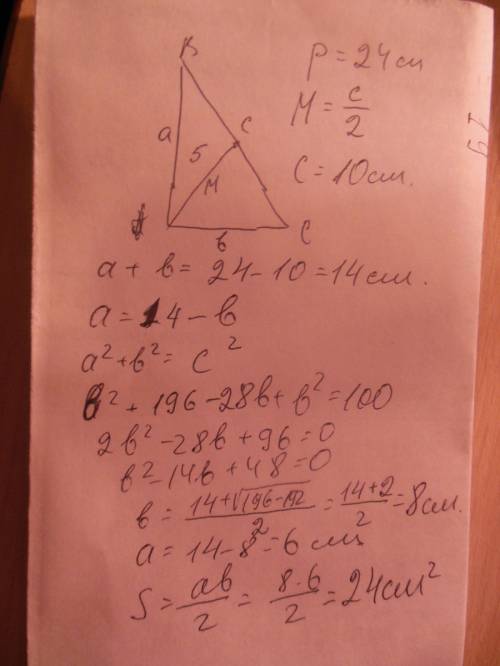 B
P = 24 см
M = c/2
C = 10 см.
a
5
C
M
A
b
C
a + b = 24 - 10 = 14 см.
a = 14 - b
a² + b² = c²
b² + 196 - 28b + b² = 100
2b² - 28b + 96 = 0
b² - 14b + 48 = 0
b = (14+√(196-192))/2 = (14+2)/2 = 8 см.
a = 14 - 8 = 6 см
S = ab/2 = (8·6)/2 = 24 см²